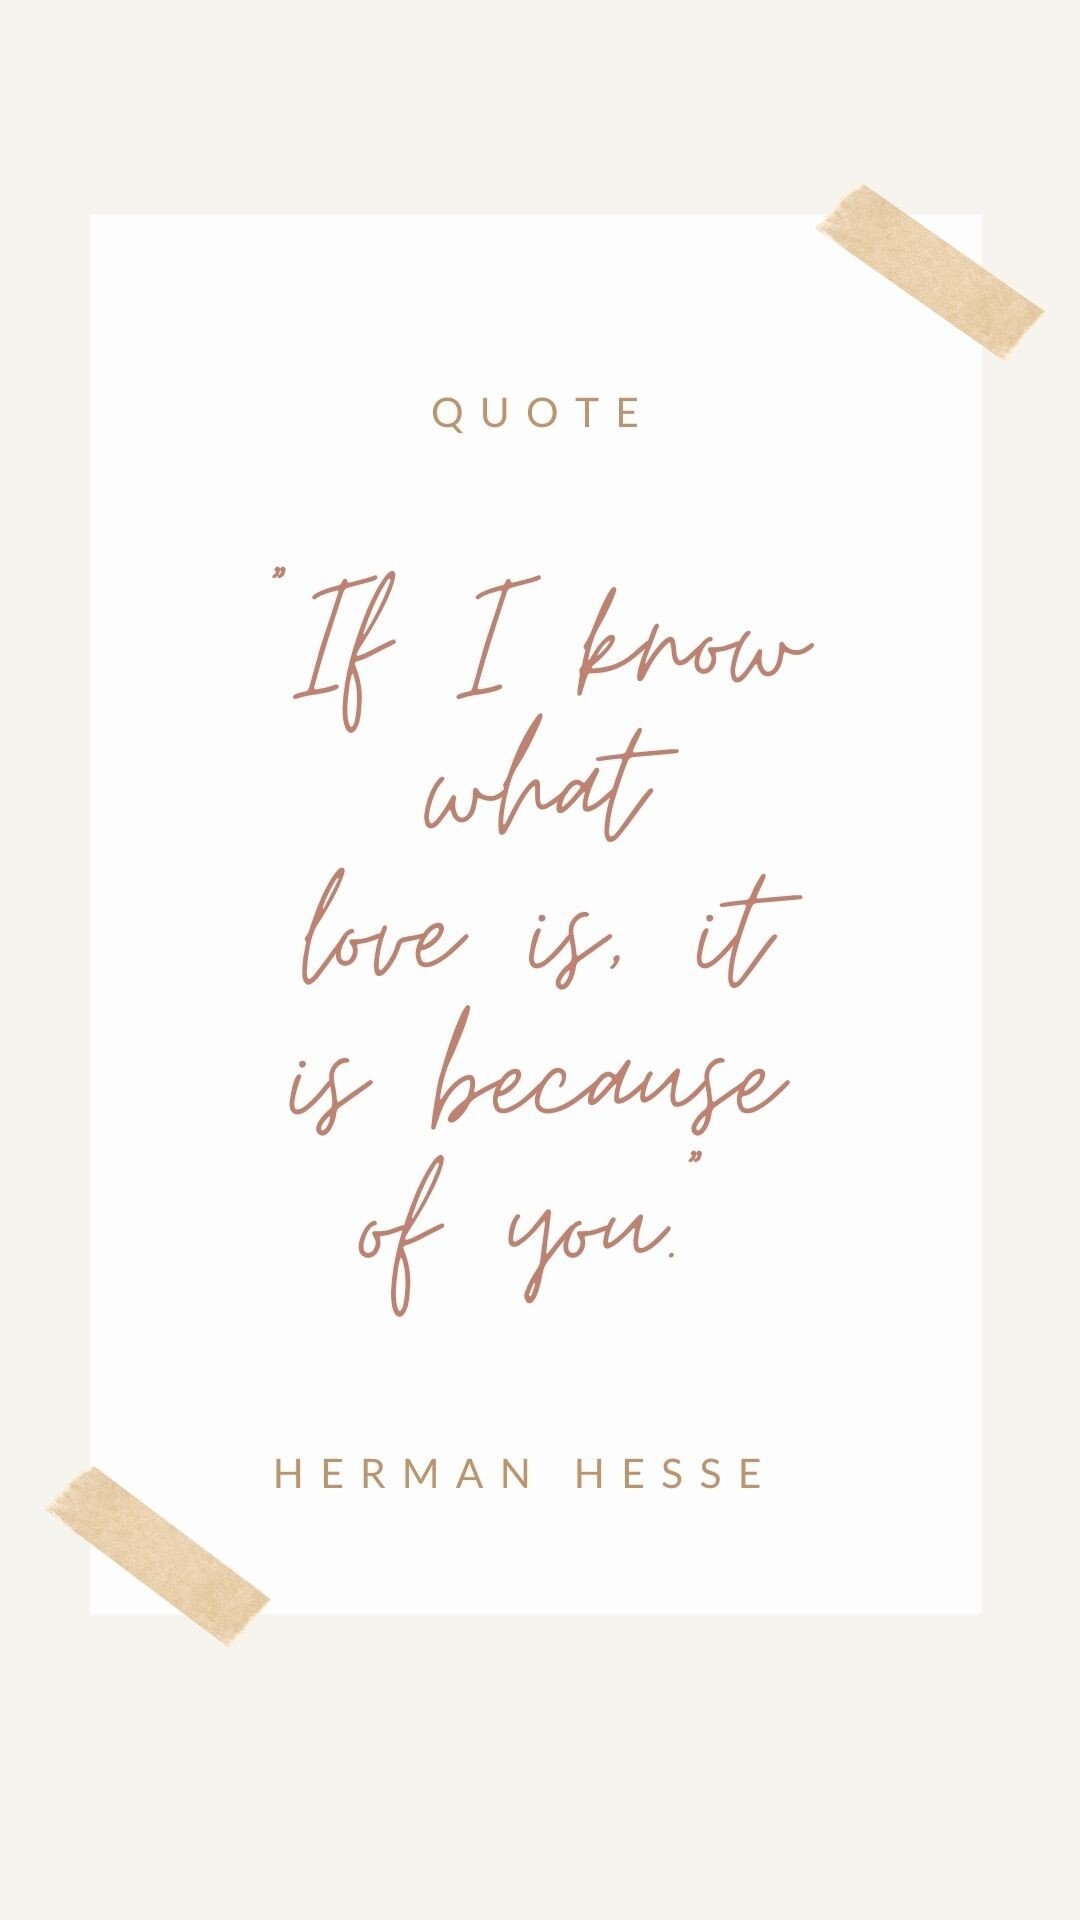 QUOTE
”If I know
what
love is, it
is because
of you.”
HERMAN HESSE